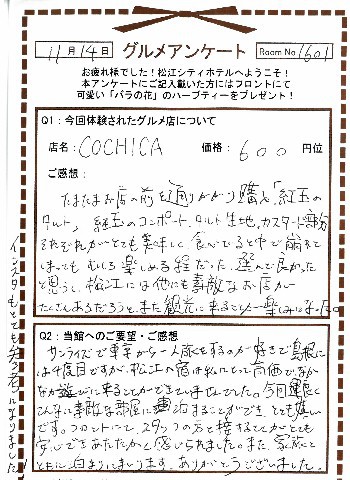 11月14日 グルメアンケート Room No 1601
お疲れ様でした！松江シティホテルへようこそ！
本アンケートにご記入戴いた方にはフロントにて
可愛い「バラの花」のハーブティーをプレゼント！
Q1：今回体験されたグルメ店について
店名：COCHICA 価格：600 円位
ご感想：
たまたまお店の前を通りかかり購入「紅玉の
タルト」紅玉のコンポート、タルト生地、カスタード部分
それぞれがとても美味しく食べてる途中で崩れて
しまっても むしろ楽しめる程だった。選んで良かった
と思うし、松江には他にも素敵なお店が
たくさんあるだろうと、また観光に来ることが楽しみになった。
インスタもとても参考になりました
Q2：当館へのご要望・ご感想
サンライズで東京から一人旅をするのが好きで島根に
は 度目ですが、松江の宿は私にとって高価でなか
なか遊びに来ることができていませんでした。今回運良く
こんなに素敵な部屋に泊まることができ、とても嬉しい
です。フロントにて、スタッフの方と接することがとても
安心であたたかく感じられました。また、家族と
ともに泊まりにまいります。ありがとうございました。